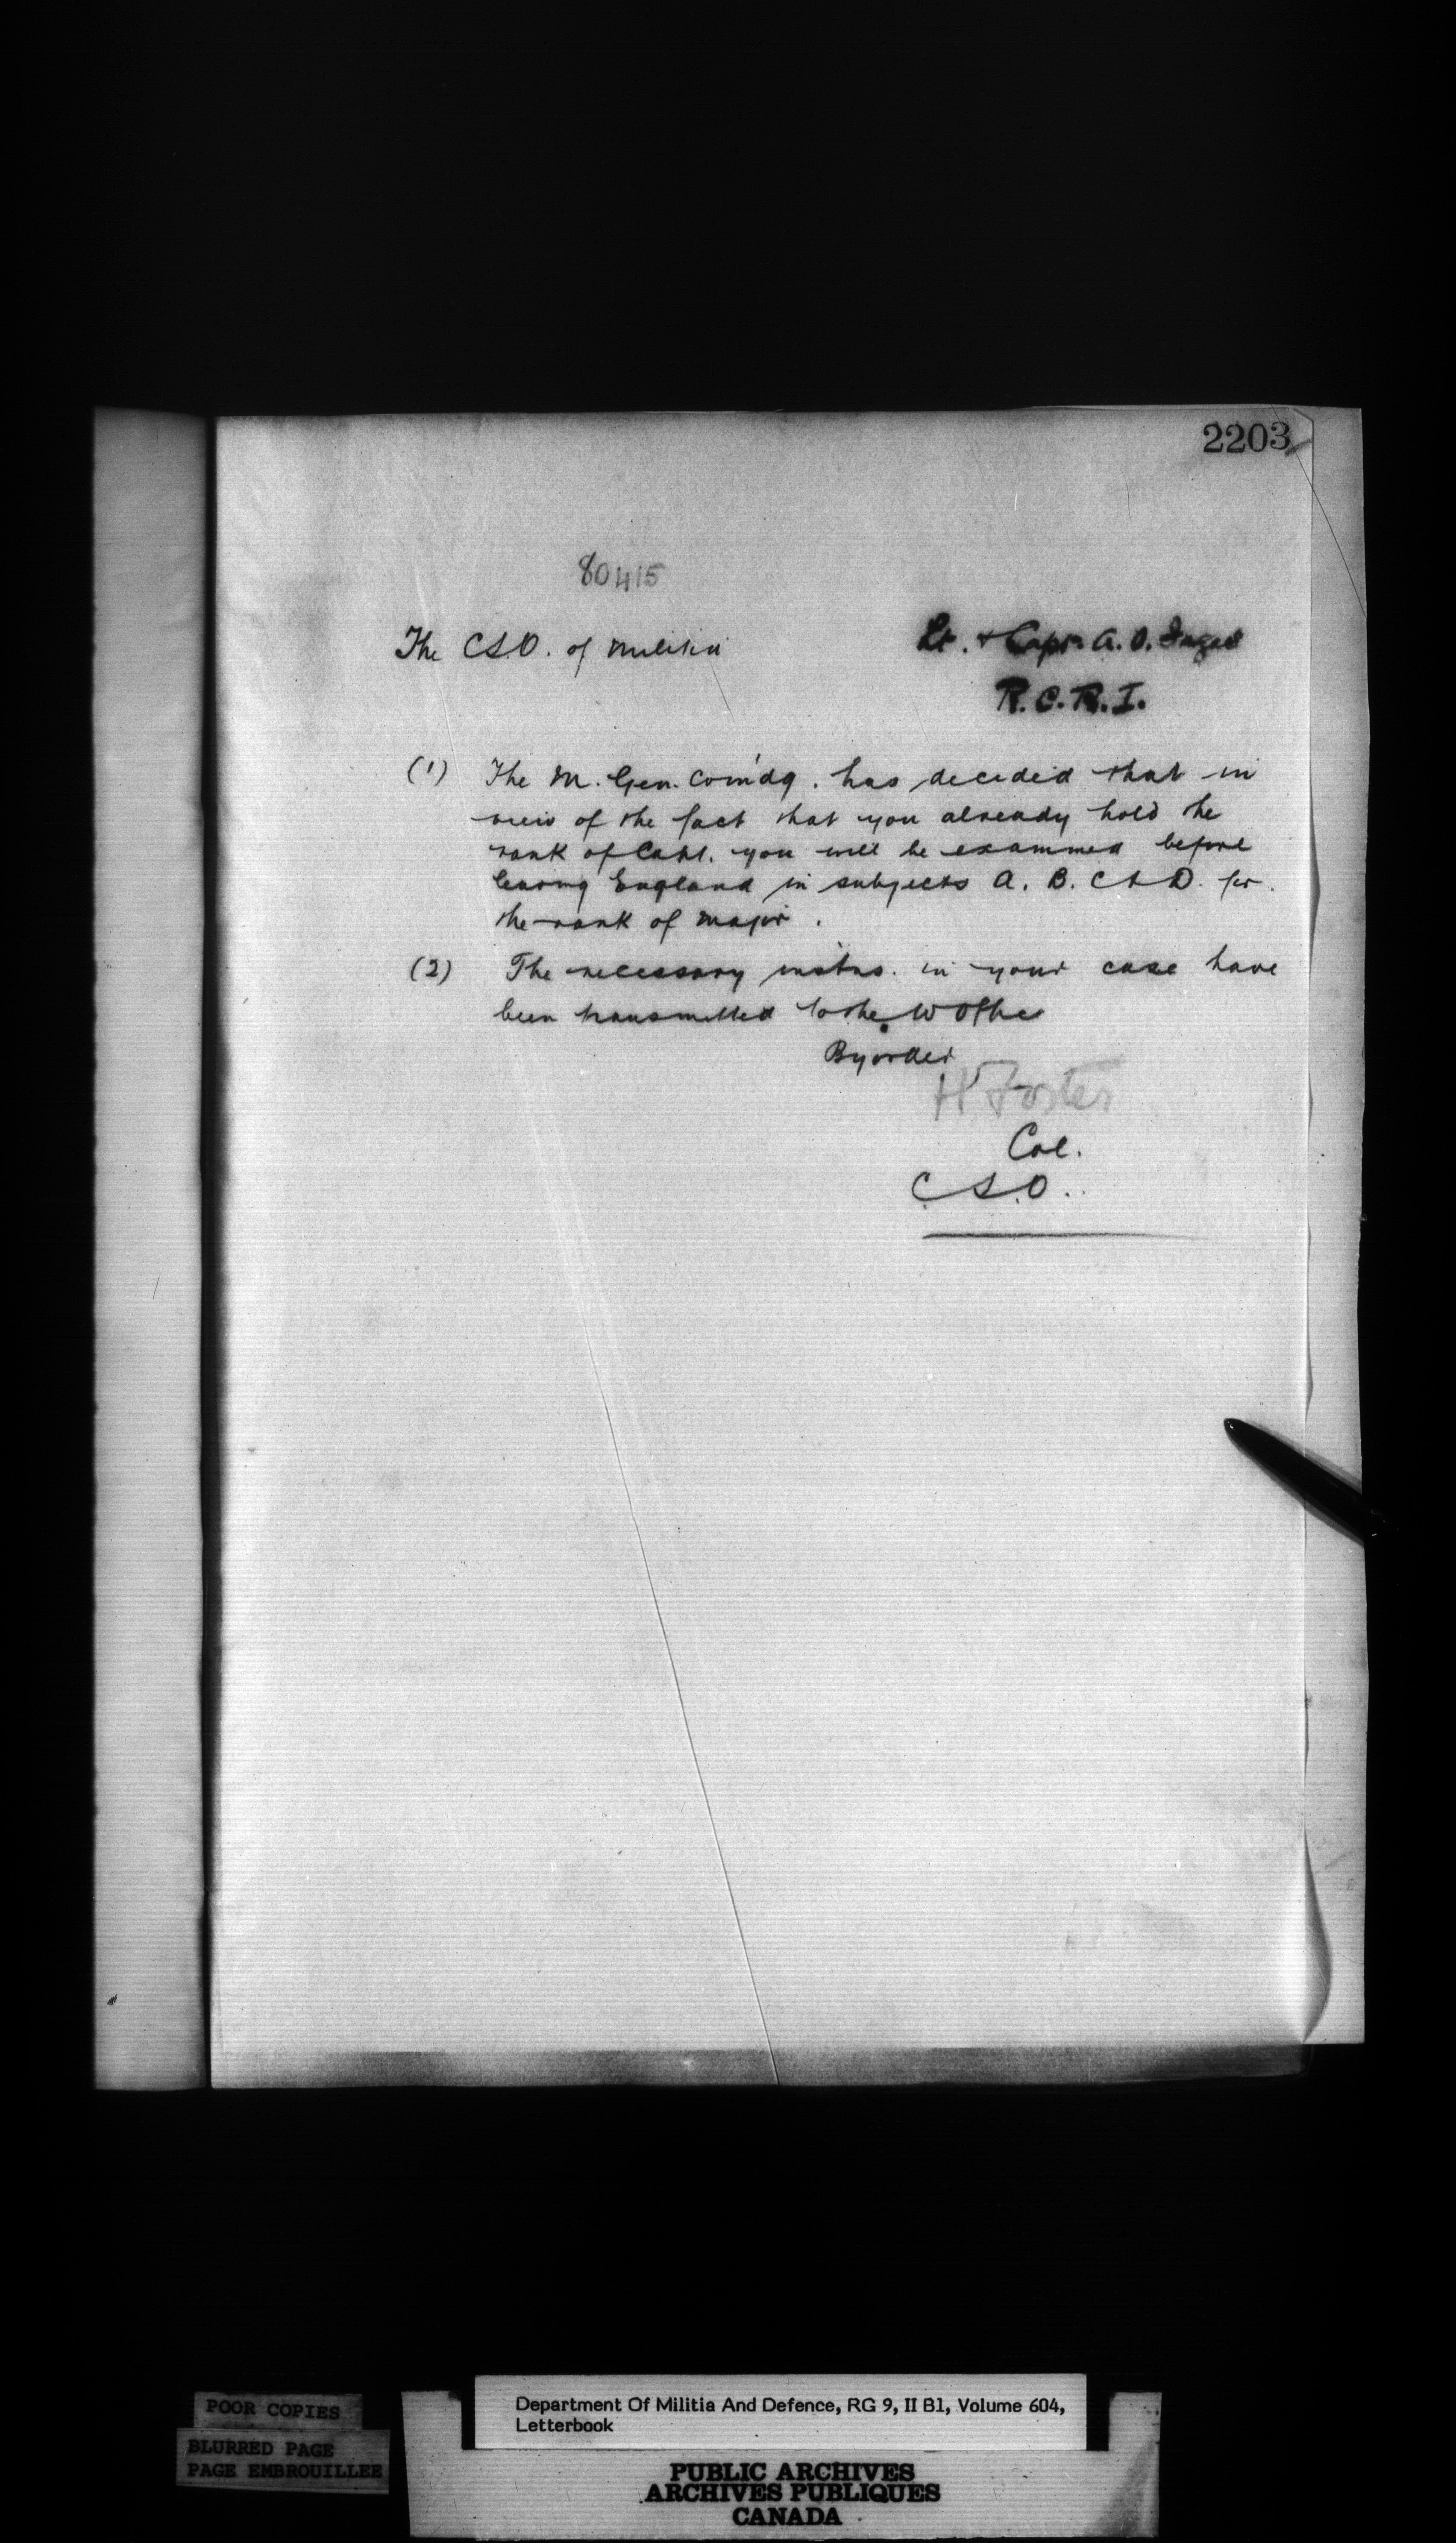 2203
80415
The C.S.O. of Militia
Lt. & Capt. A. O.
R.C.R.I.
(1) The M. Gen. Com'dg. has decided that in
view of the fact that you already hold the
rank of Capt. you will be examined before
leaving England in subjects A. B. C & D. for
the rank of Major.
(2) The necessary instns. in your case have
been transmitted to the W Office
By order
H Foster
Col.
C.S.O.
POOR COPIES
BLURRED PAGE
PAGE EMBROUILLEE
Department Of Militia And Defence, RG 9, II B1, Volume 604,
Letterbook
PUBLIC ARCHIVES
ARCHIVES PUBLIQUES
CANADA